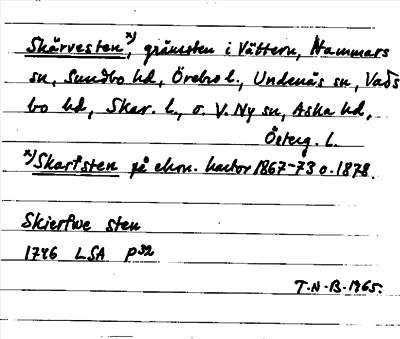 Skärvesten x), gränssten i Vättern, Hammars
sn, Sundbo hd, Örebro l., Undenäs sn, Vads
bo hd, Skar. l., o. V. Ny sn, Aska hd,
Österg. l.
x) Skarfsten på ekon. kartor 1867-73 o. 1878.
Skierfwe sten
1746 LSA P32
T.N.B. 1965.